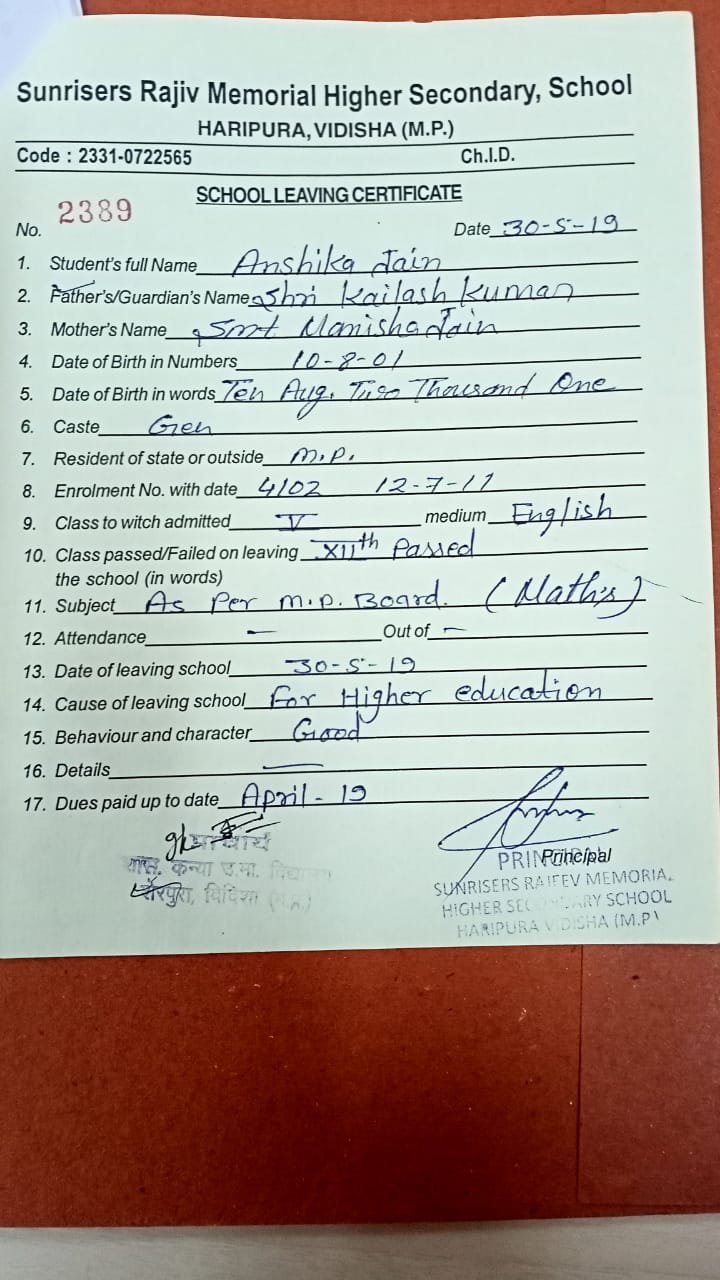 Sunrisers Rajiv Memorial Higher Secondary, School
HARIPURA, VIDISHA (M.P.)
Code : 2331-0722565 Ch.I.D.
SCHOOL LEAVING CERTIFICATE
No. 2389 Date 30-5-19
1. Student's full Name Anshika Jain
2. Father's/Guardian's Name Shri Kailash Kumar
3. Mother's Name Smt Manisha Jain
4. Date of Birth in Numbers 10-8-01
5. Date of Birth in words Ten Aug. Two Thousand One
6. Caste Gen
7. Resident of state or outside M.P.
8. Enrolment No. with date 4102 12-7-11
9. Class to witch admitted V medium English
10. Class passed/Failed on leaving XIIth Passed
the school (in words)
11. Subject As Per M.P. Board. (Math's)
12. Attendance — Out of —
13. Date of leaving school 30-5-19
14. Cause of leaving school For Higher education
15. Behaviour and character Good
16. Details —
17. Dues paid up to date April - 19
प्राचार्य
शास. कन्या उ.मा. विद्यालय
शेरपुरा, विदिशा (म.प्र.)
PRINCIPAL
Principal
SUNRISERS RAJEEV MEMORIAL
HIGHER SECONDARY SCHOOL
HARIPURA VIDISHA (M.P)